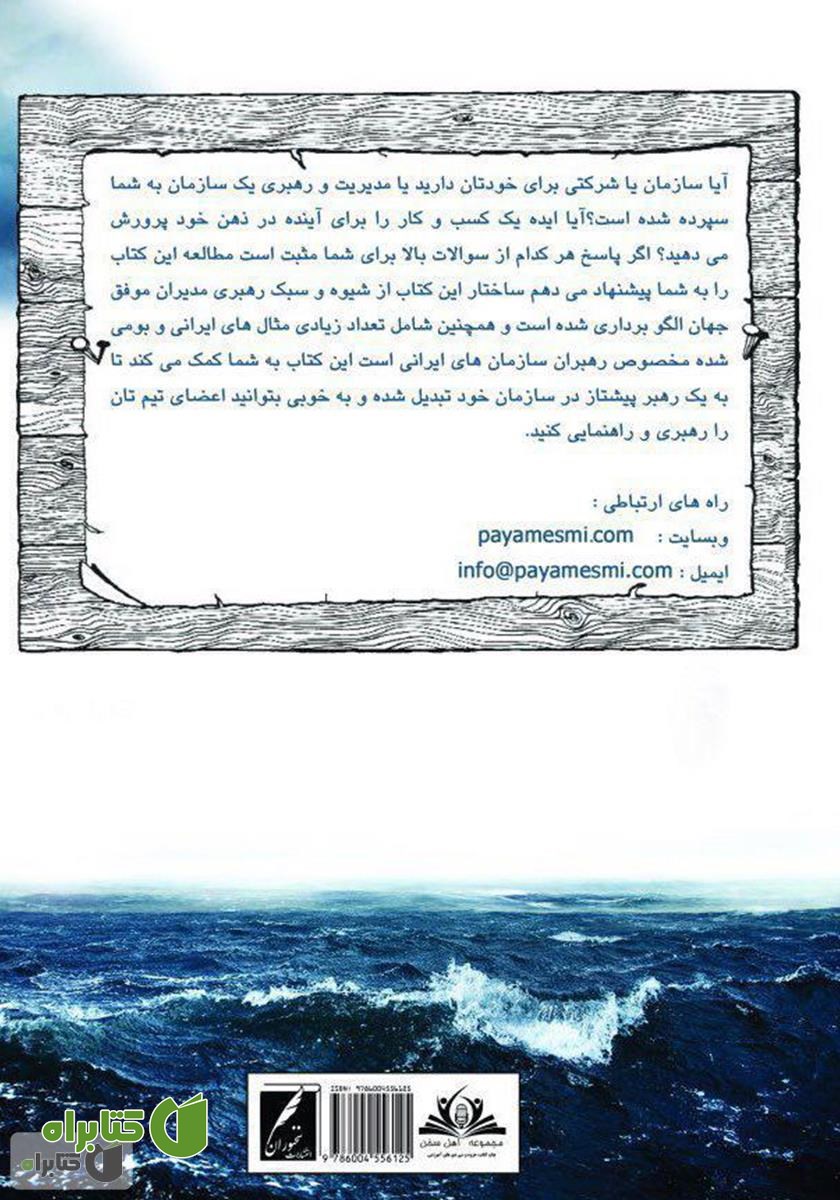 آیا سازمان یا شرکتی برای خودتان دارید یا مدیریت و رهبری یک سازمان به شما
سپرده شده است؟آیا ایده یک کسب و کار را برای آینده در ذهن خود پرورش
می دهید؟ اگر پاسخ هر کدام از سوالات بالا برای شما مثبت است مطالعه این کتاب
را به شما پیشنهاد می دهم ساختار این کتاب از شیوه و سبک رهبری مدیران موفق
جهان الگو برداری شده است و همچنین شامل تعداد زیادی مثال های ایرانی و بومی
شده مخصوص رهبران سازمان های ایرانی است این کتاب به شما کمک می کند تا
به یک رهبر پیشتاز در سازمان خود تبدیل شده و به خوبی بتوانید اعضای تیم تان
را رهبری و راهنمایی کنید.
راه های ارتباطی :
وبسایت : payamesmi.com
ایمیل : info@payamesmi.com
مجموعه اهل سخن
ISBN: 9786004556125
9 786004 556125
انتشارات
سخنوران
کتابراه
کتابراه